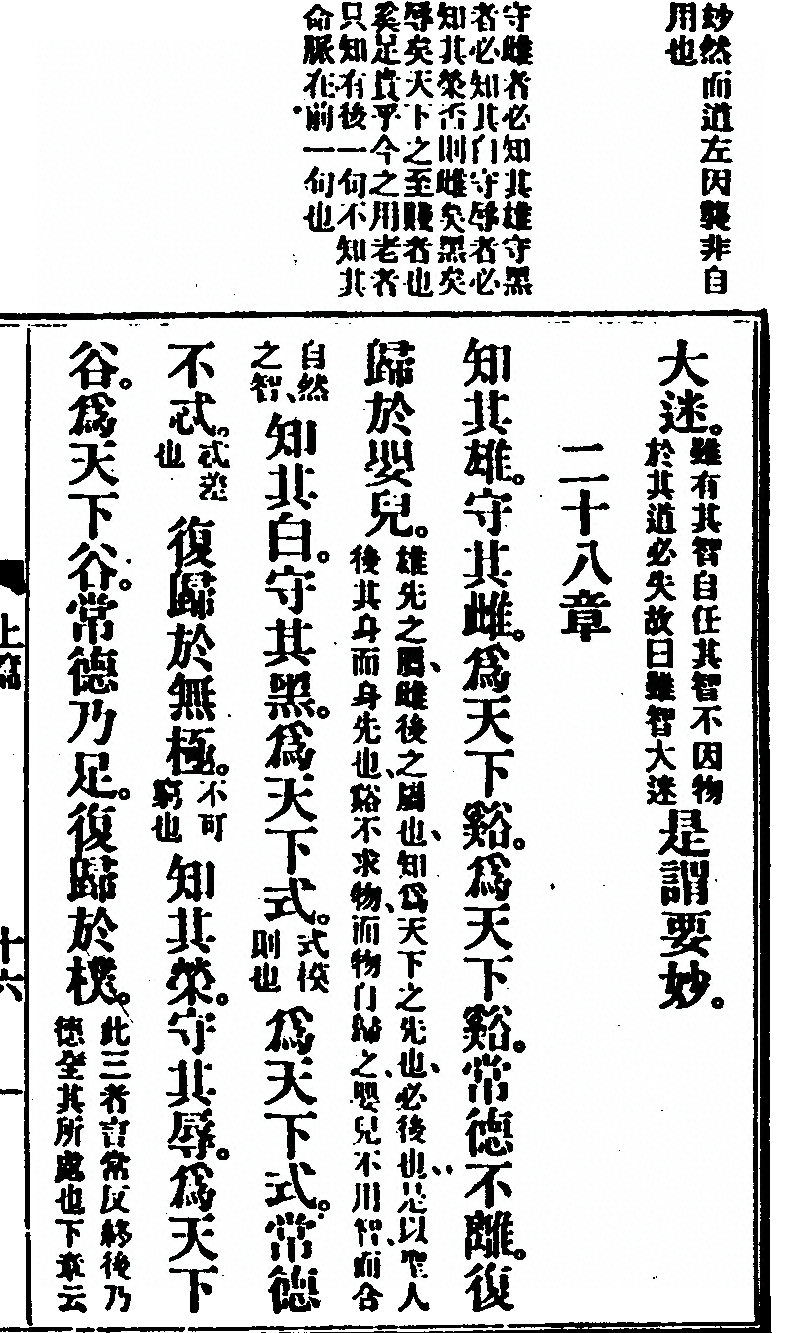 玅然而道左因襲非自
用也
守雌者必知其雄守黑
者必知其白守辱者必
知其榮否則雌矣黑矣
辱矣天下之至賤者也
奚足貴乎今之用老者
只知有後一句不知其
命脈在前一句也
大迷。
雖有其智自任其智不因物
於其道必失故曰雖智大迷
是謂要妙。
二十八章
知其雄。守其雌。爲天下谿。爲天下谿。常德不離。復
歸於嬰兒。
雄先之屬、雌後之屬也、知爲天下之先也、必後也、是以聖人
後其身而身先也、谿不求物、而物自歸之、嬰兒不用智、而合
自然
之智、
知其白。守其黑。爲天下式。
式模
則也
爲天下式。常德
不忒。
忒差
也
復歸於無極。
不可
窮也
知其榮。守其辱。爲天下
谷。爲天下谷。常德乃足。復歸於樸。
此三者言常反終後乃
德全其所處也下章云
上篇
十六